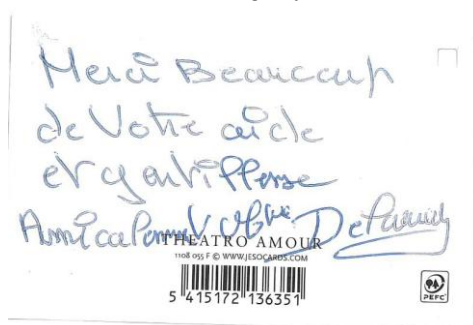 Merci Beaucoup
de Votre aide
et gentillesse
Amicalement
THEATRO AMOUR
1108 055 F © WWW.JESOCARDS.COM
5 415172 136351
PEFC